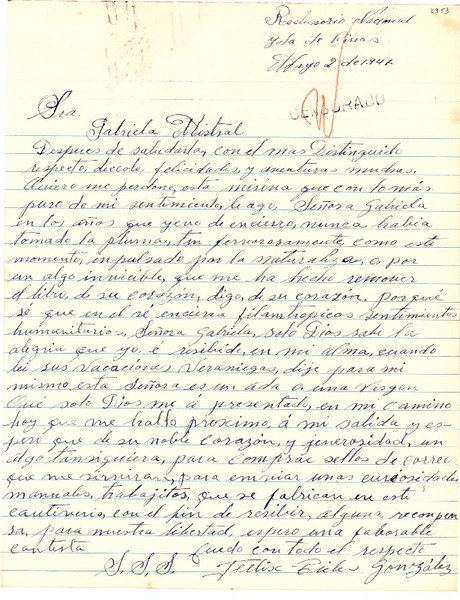 2953
Reclusorio Nacional
Isla de Pinos
Mayo 2 de 1947.
CENSURADO
Sra.
Gabriela Mistral
Despues de saludarla, con el mas Distinguido
respecto, deceole felicidades, y abenturas muchas.
Quiero me perdone, está misiva que con lo más
puro de mi sentimiento, le ago. Señora Gabriela
en los años que yevo de encierro, nunca habia
tomado la pluma, tan fervorosamente, como este
momento, inpulsado por la naturaleza, o por
un algo invicible, que me ha hecho remover
el libro, de su corazón, digo, de su corazón, porqué
sé que en el sé encierra filantropicos sentimientos
humanitarios, Señora Gabriela, solo Dios sabe la
alegria que yo, é recibido, en mi alma, cuando
lei sus Vacaciones Veraniegas, dije para mi
mismo esta Señora es un ada o una Virgen
Qué solo Dios me á presentado, en mi camino
hoy que me hallo proximo, á mi salida y es-
pero que de su noble corazón, y jenerosidad, un
algo tansiquiera, para comprar sellos de correo
que me sirviran, para enviar unas curiosidades
manuales, trabajitos, que se fabrican en este
cautiverio, con el fin de recibir, alguna recompen
sa, para nuestra libertad, espero una faborable
contesta Quedo con todo el respecto
S. S. S. Felix González